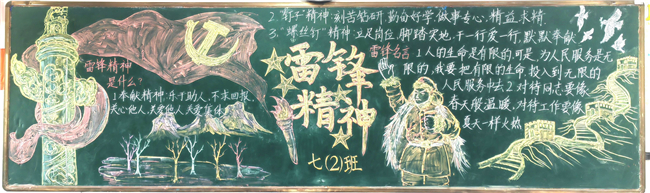 雷锋精神
是什么?
1.奉献精神:乐于助人、不求回报、
关心他人,关爱他人,关爱集体
雷锋
精神
七(2)班
2.“钉子”精神:刻苦钻研,勤奋好学,做事专心,精益求精
3.“螺丝钉”精神:立足岗位,脚踏实地,干一行爱一行,默默奉献
雷锋名言
1.人的生命是有限的,可是,为人民服务是无
限的,我要把有限的生命,投入到无限的
人民服务中去2.对待同志要像
春天般温暖,对待工作要像
夏天一样火热